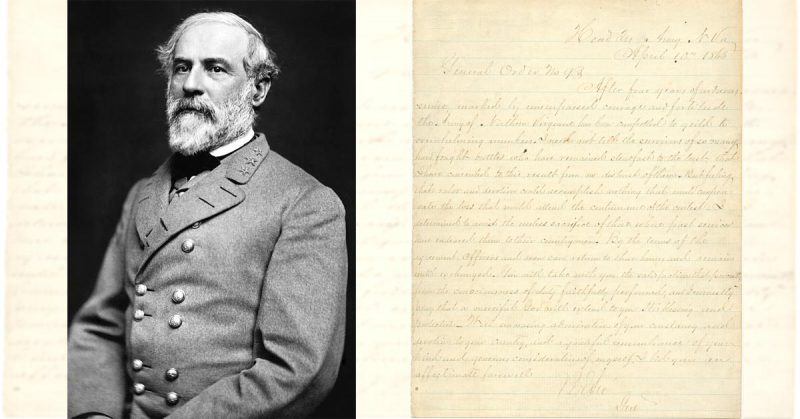 Head Qrs Army N Va
April 10th 1865
General Order No 9
After four years of arduous
service marked by unsurpassed courage and fortitude
the Army of Northern Virginia has been compelled to yield to
overwhelming numbers. I need not tell the survivors of so many
hard fought battles who have remained steadfast to the last that
I have consented to this result from no distrust of them. But feeling
that valor and devotion could accomplish nothing that could compen
sate the loss that would attend the continuance of the contest I
determined to avoid the useless sacrifice of those whose past services
have endeared them to their countrymen. By the terms of the
agreement officers and men can return to their homes and remain
until exchanged. You will take with you the satisfaction that proceeds
from the consciousness of duty faithfully performed, and I earnestly
pray that a merciful God will extend to you His blessing and
protection. With unceasing admiration of your constancy and
devotion to your country, and a grateful remembrance of your
kind and generous consideration of myself, I bid you an
affectionate farewell
R E Lee
Genl